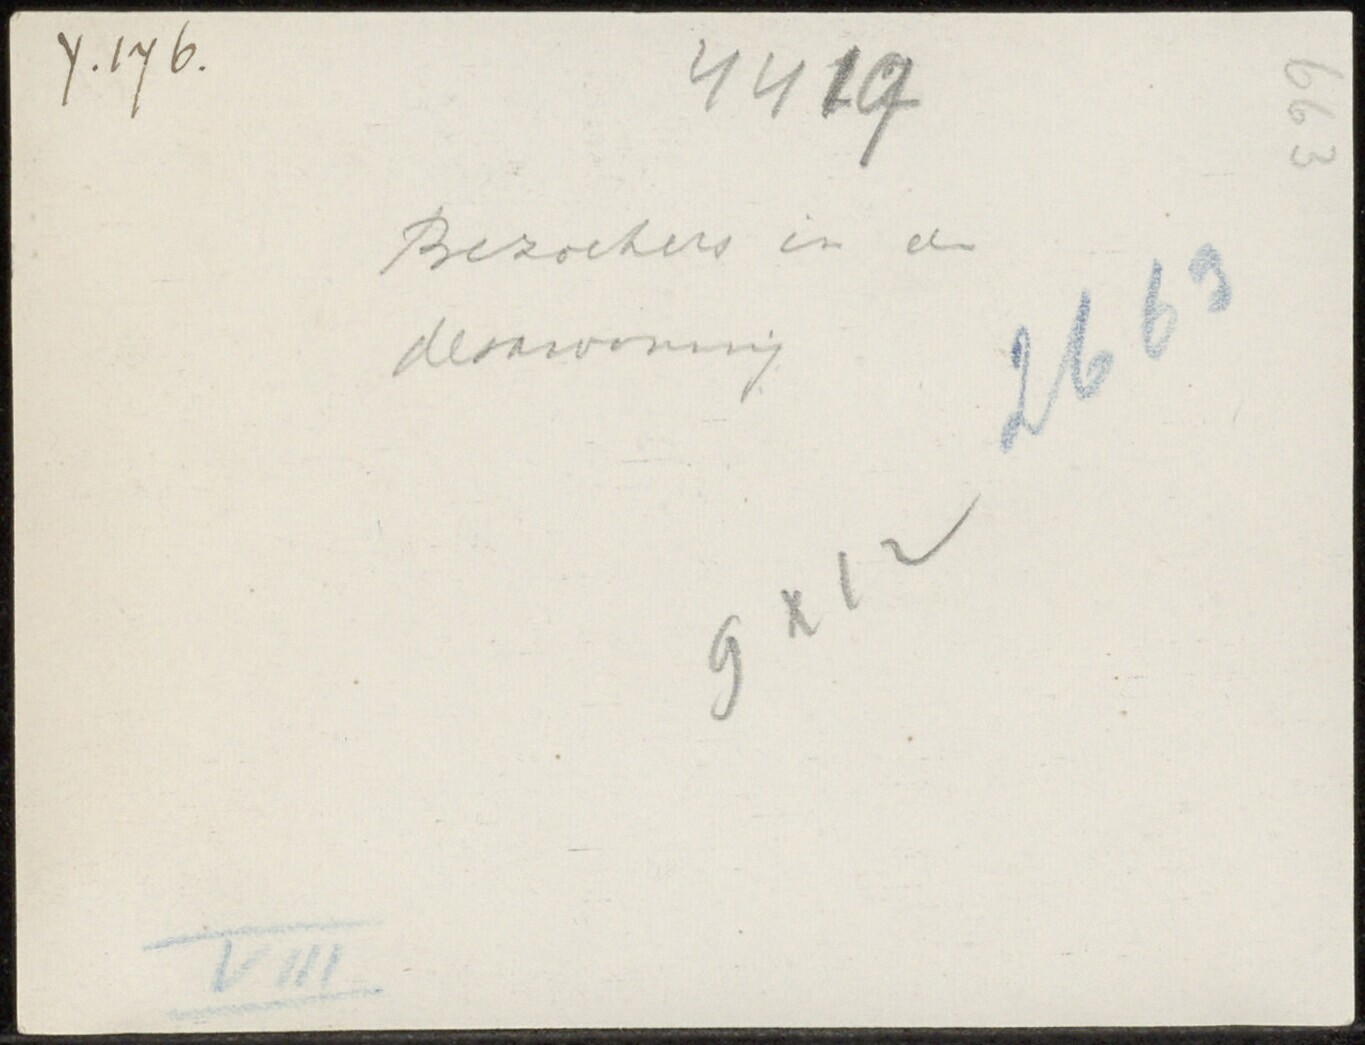 Y.176.
4419
663
Bezoekers in de
desawoning
2663
9 x 12
VIII